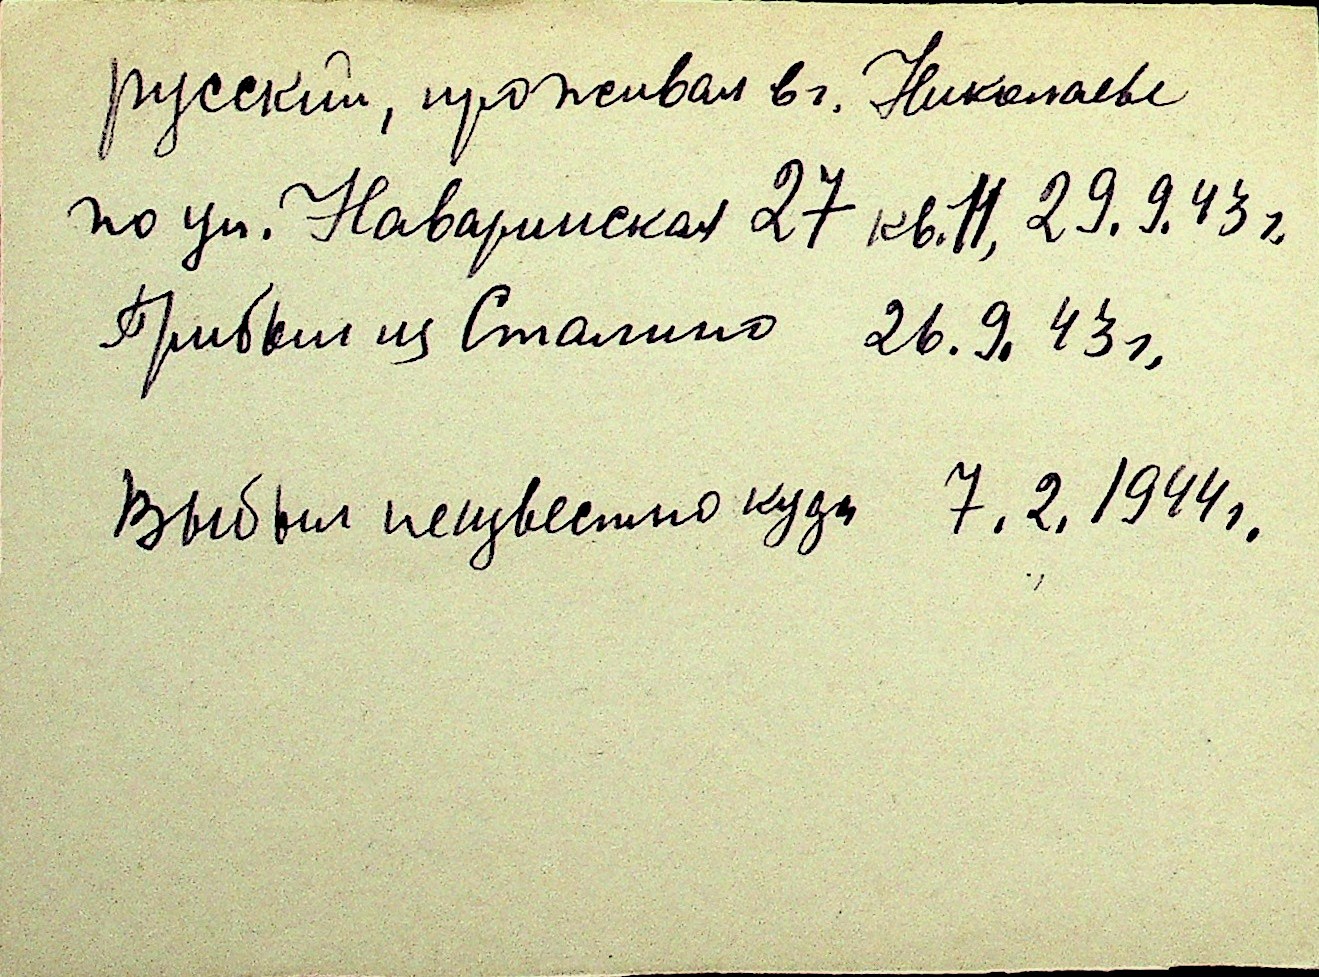 русский, проживал в г. Николаеве
по ул. Наваринская 27 кв. 11, 29.9.43 г.
Прибыл из Сталино 26.9.43 г.
Выбыл неизвестно куда 7.2.1944 г.